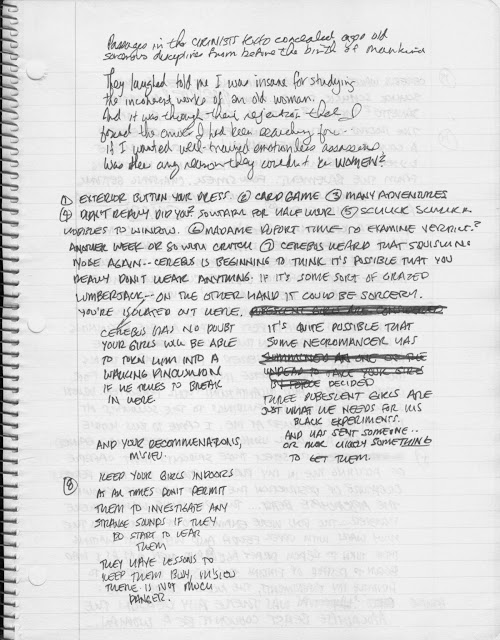 Passages in the CIRINIST texts concealed age old
sorcerous disciplines from before the birth of mankind
They laughed told me I was insane for studying
the incoherent works of an old woman.
And it was through their rejection that I
found the answer I had been searching for--
if I wanted well-trained emotionless assassins
was there any reason they couldn't be WOMEN?
① EXTERIOR BUTTON YOUR DRESS ② CARD GAME ③ MANY ADVENTURES
④ DIDN'T REALLY DID YOU? SOLITAIRE FOR HALF HOUR ⑤ SCHLICK SCHLICK
HOBBLES TO WINDOW. ⑥ MADAME DUFORT TIME TO EXAMINE
ANOTHER WEEK OR SO WITH CRUTCH ⑦ CEREBUS HEARD THAT SQUISHING
NOISE AGAIN-- CEREBUS IS BEGINNING TO THINK IT'S POSSIBLE THAT YOU
REALLY DON'T HEAR ANYTHING. IF IT'S SOME SORT OF CRAZED
LUMBERJACK-- ON THE OTHER HAND IT COULD BE SORCERY.
YOU'RE ISOLATED OUT HERE.
CEREBUS HAS NO DOUBT
YOUR GIRLS WILL BE ABLE
TO TURN HIM INTO A
WALKING PINCUSHION
IF HE TRIES TO BREAK
IN HERE.
IT'S QUITE POSSIBLE THAT
SOME NECROMANCER HAS
DECIDED
THREE PUBESCENT GIRLS ARE
JUST WHAT HE NEEDS FOR HIS
BLACK EXPERIMENTS.
AND HAS SENT SOMEONE..
OR MORE LIKELY SOMETHING
TO GET THEM.
AND YOUR RECOMMENDATIONS,
M'SIEU.
⑧ KEEP YOUR GIRLS INDOORS
AT ALL TIMES DON'T PERMIT
THEM TO INVESTIGATE ANY
STRANGE SOUNDS IF THEY
DO START TO HEAR
THEM
THEY HAVE LESSONS TO
KEEP THEM BUSY, M'SIEU
THERE IS NOT MUCH
DANGER.